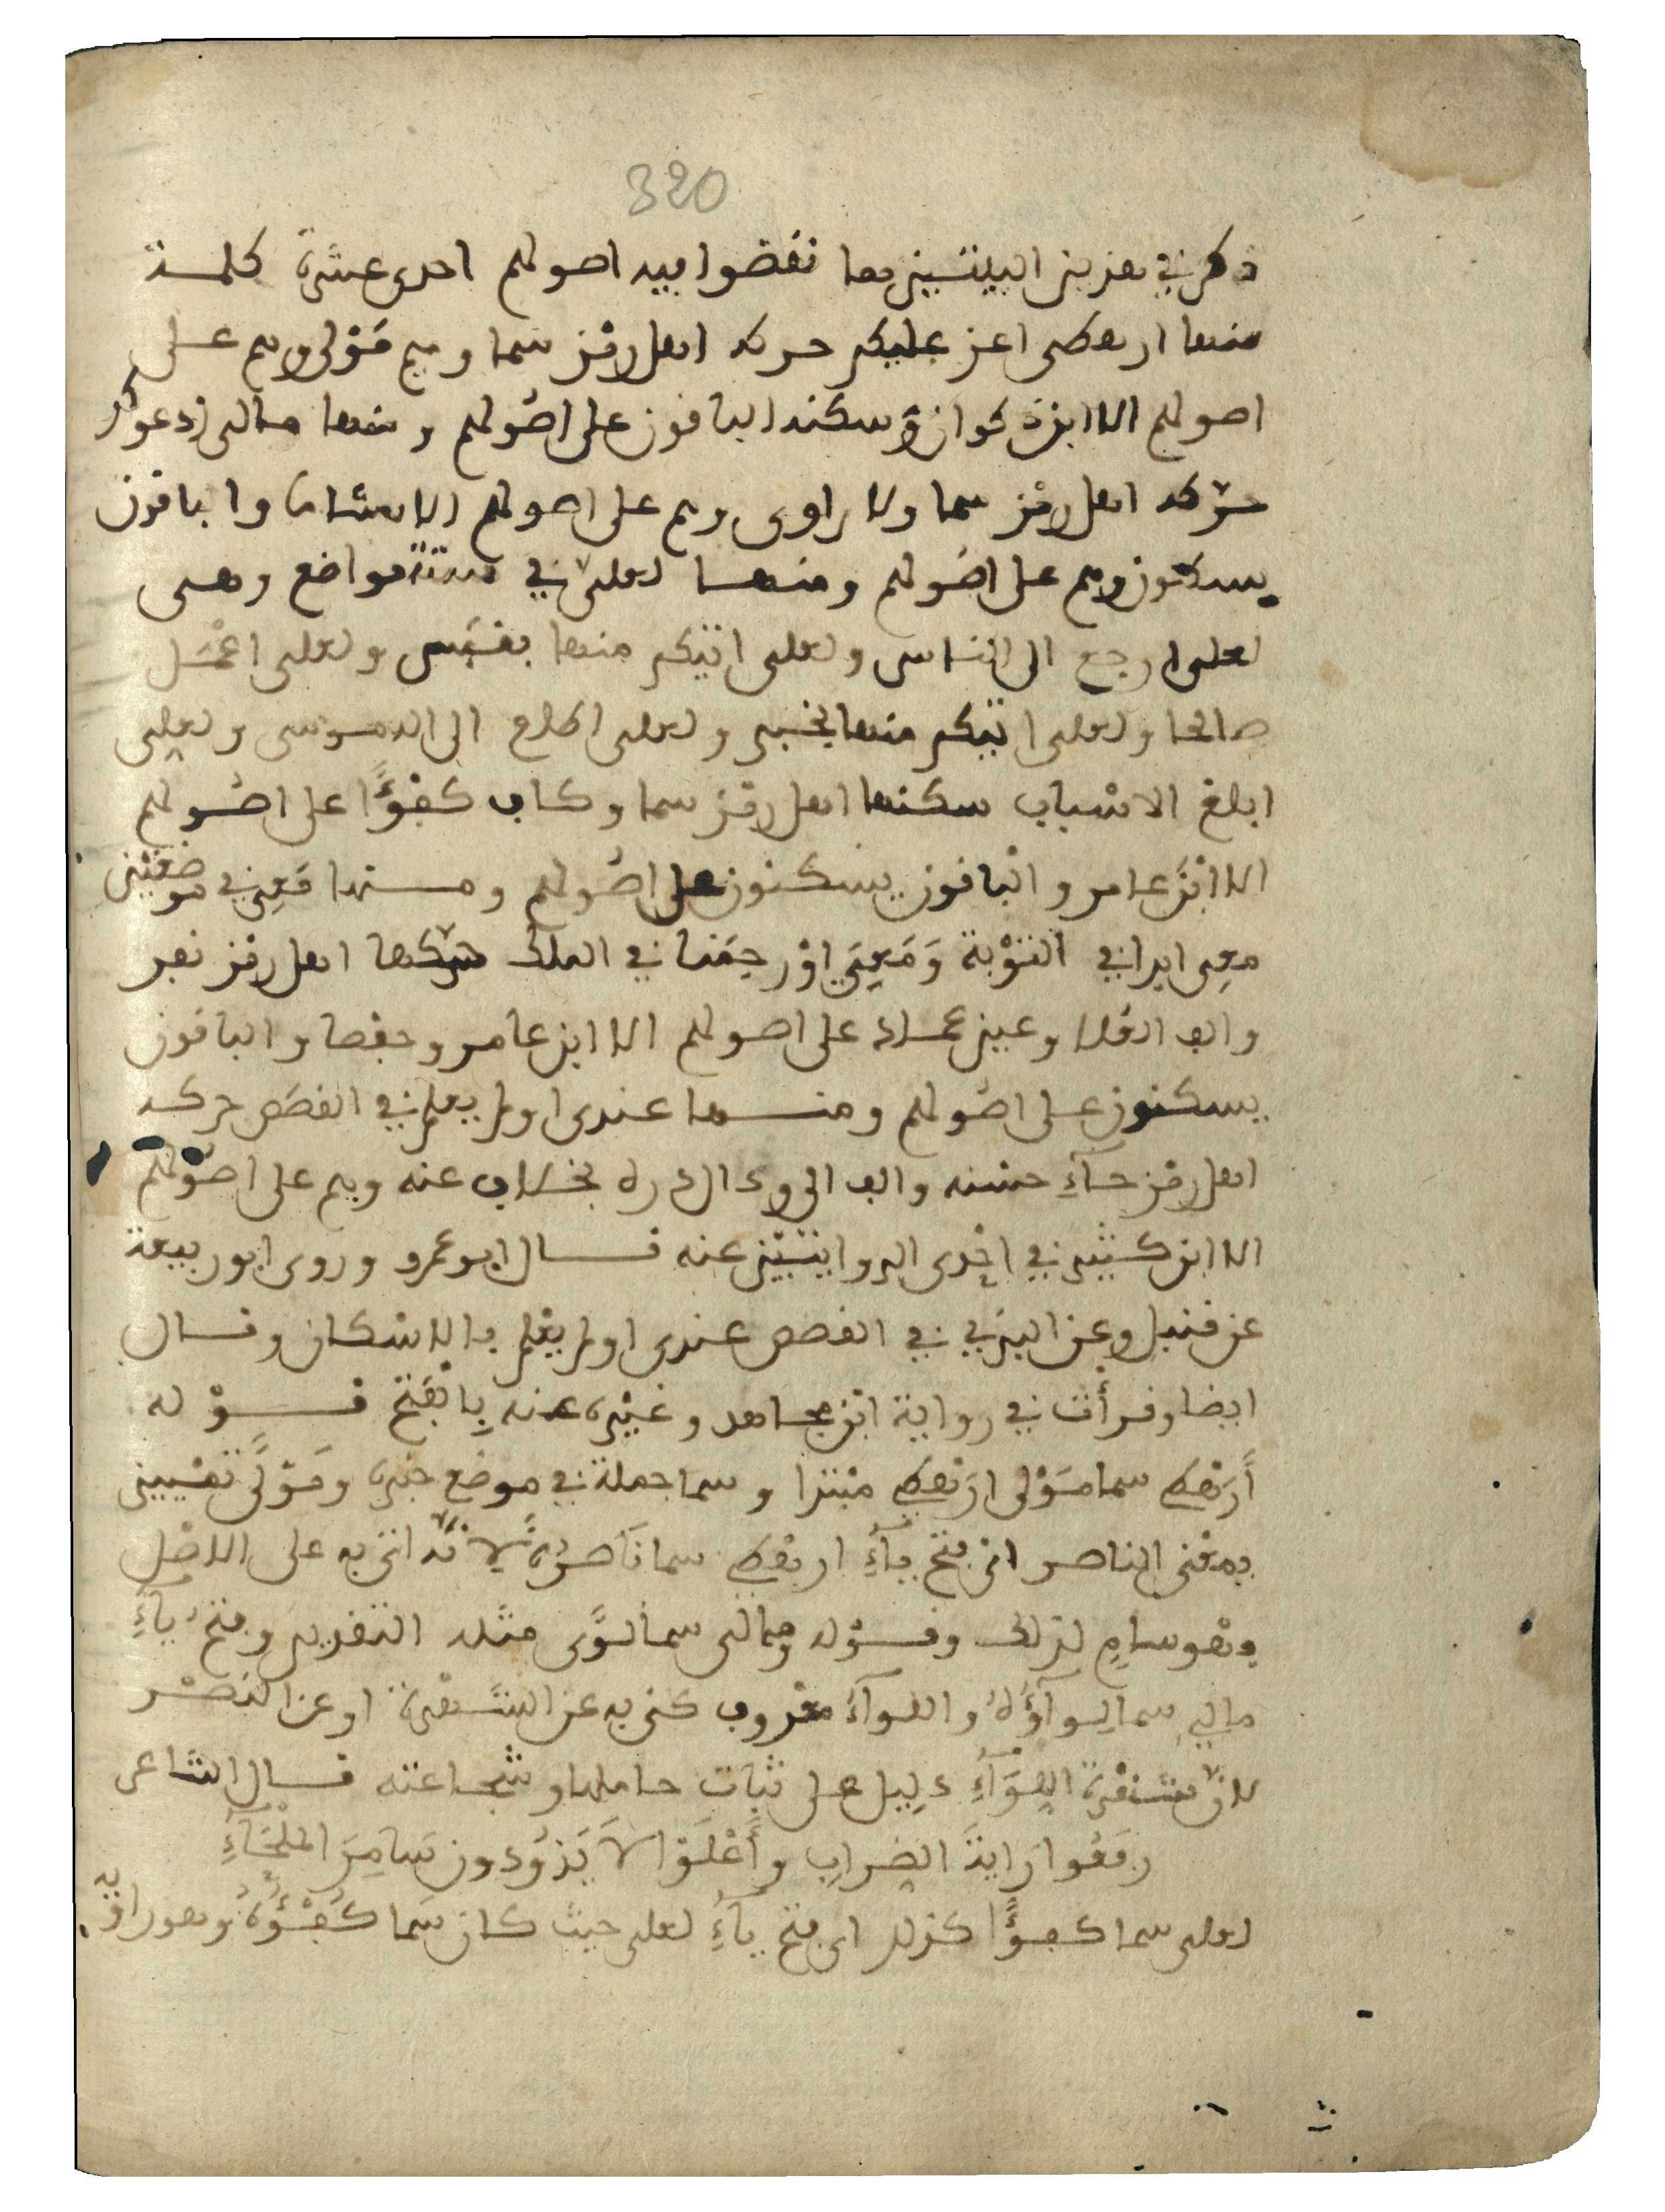 320
ذكر في هذين البيتين مما نقضوا فيه اصولهم احدى عشرة كلمة
منها ارهطى اعز عليكم حركه اهل رمز سما وميم مولى وهم على
اصولهم الا ابن ذكوان وسكنه الباقون على اصولهم ومنها مالى ادعوكم
حركه اهل رمز سما ولام لوى وهم على اصولهم الا هشاما والباقون
يسكنون وهم على اصولهم ومنها لعلى في ستة مواضع وهى
لعلى ارجع الى الناس ولعلى اتيكم منها بقبس ولعلى اعمل
صالحا ولعلى اتيكم منها بخبر ولعلى اطلع الى اله موسى ولعلى
ابلغ الاسباب سكنها اهل رمز سما وكاف كفؤا على اصولهم
الا ابن عامر والباقون يسكنون على اصولهم ومنها معى في موضعين
معى ابدا في التوبة ومعى اورحمنا في الملك حركها اهل رمز نفر
والف العلا وعين عماد على اصولهم الا ابن عامر وحفصا والباقون
يسكنون على اصولهم ومنها عندى اولم يعلم في القصص حركه
اهل رمز حاء حسنه والف الى ودال دره بخلاف عنه وهم على اصولهم
الا ابن كثير في احدى الروايتين عنه قال ابو عمرو وروى ابو ربيعة
عن قنبل وعن البزي في القصص عندى اولم يعلم بالاسكان وقال
ايضا وقرأت في رواية ابن مجاهد وغيره عنه بالفتح قوله
أرهطى سما مولى ارهطى مبتدا وسما جملة في موضع خبره ومولى تمييز
بمعنى الناصر اى فتح ياء ارهطى سما ناصره لانه اتى به على الاصل
وهو سام لذلك وقوله ومالى سما لوى مثله التقدير وفتح ياء
مالى سما لواؤه واللواء معروف كنى به عن الشهرة او عن النصر
لان شهرة اللواء دليل على ثبات حاملها وشجاعته قال الشاعر
رفعوا راية الضراب وأعلوا لا يذودون سامر الملحاء
لعلى سما كفؤا كذلك اى فتح ياء لعلى حيث كان سما كفؤه وهو راويه